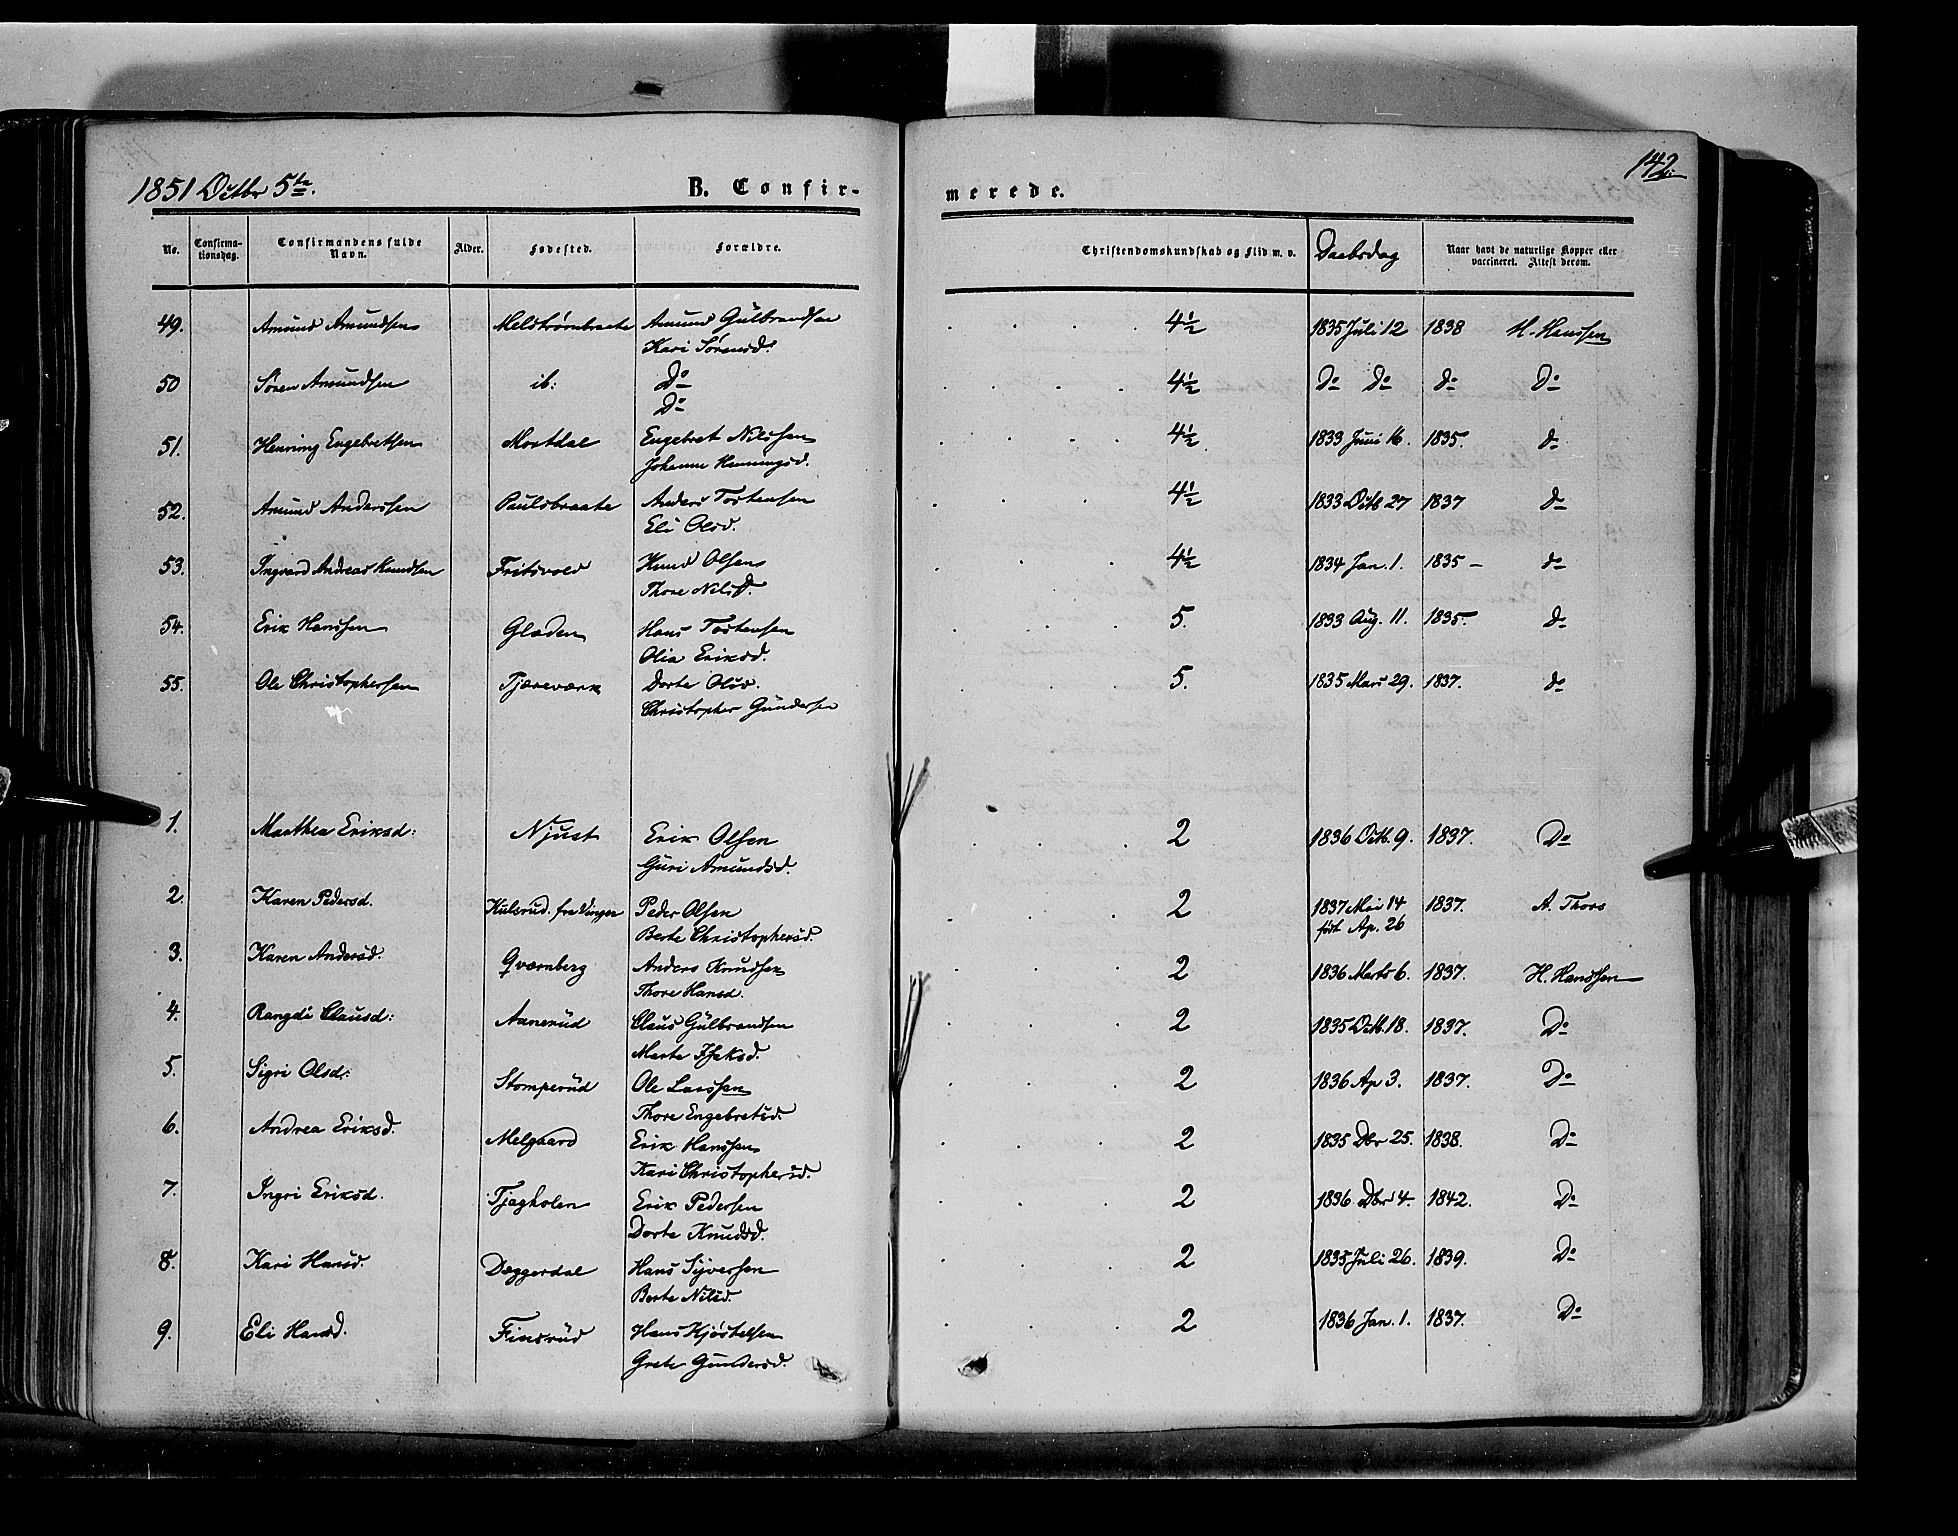 142.
1851 Octbr 5te.
B. Confir-
merede.
No.
Confirma-
tionsdag.
Confirmandens fulde
Navn.
Alder.
Fødested.
Forældre.
Christendomskundskab og Flid m. v.
Daabsdag
Naar havt de naturlige Kopper eller
vaccineret. Attest derom.
49. Amund Amundsen Melstrømbraate Amund Gülbrandsen 4½ 1835 Juli 12 1838 H. Hanssen
Kari Sørensd.
50 Søren Amundsen ib: Do 4½ Do Do do Do
Do
51. Henning Engebretsen Mortdal Engebret Nilssen 4½ 1833 Juni 16. 1835. do
Johanne Henningsd.
52. Amund Anderssen Paulsbraate Anders Tostensen 4½ 1833 Octb 27 1837 do
Eli Olsd.
53. Ingvard Andreas Knudsen Fritsvold Knud Olsen 4½ 1834 Jan. 1. 1835 - do
Thore Nilsd.
54. Erik Hanssen Gladen Hans Tostensen 5. 1833 Aug. 11. 1835. do
Olia Eriksd.
55. Ole Christophersen Tjæreværk Dorte Olsd. 5. 1835 Mars 29. 1837. do
Christopher Gundersen
1. Marthea Eriksd: Njust Erik Olsen 2 1836 Octb. 9. 1837. Do
Guri Amundsd.
2. Karen Pedersd. Kulsrud. fra Vinger Peder Olsen 2 1837 Mai 14 1837. A. Thors
født Ap. 26
Berte Christophersd.
3. Karen Andersd. Qværnberg Anders Knudsen 2 1836 Marts 6. 1837. H. Hanssen
Thore Hansd.
4. Rangdi Clausd: Aanerüd Claus Gülbrandsen 2 1835 Octb. 18. 1837. Do
Marte Isaksd.
5. Sigri Olsd: Stomperüd Ole Larssen 2 1836 Ap 3. 1837. Do
Thore Engebretsd.
6. Andrea Eriksd. Melgaard Erik Hanssen 2 1835 Dbr 25. 1838. Do
Kari Christophersd.
7. Ingri Eriksd. Tjagholen Erik Pedersen 2 1836 Dbr 4. 1842. Do
Dorte Knudsd.
8. Kari Hansd. Dæggerdal Hans Syversen 2 1835 Juli 26. 1839. Do
Berte Nilsd.
9. Eli Hansd. Finsrüd Hans Kjøstelsen 2 1836 Jan. 1. 1837. Do
Grete Gundersd.